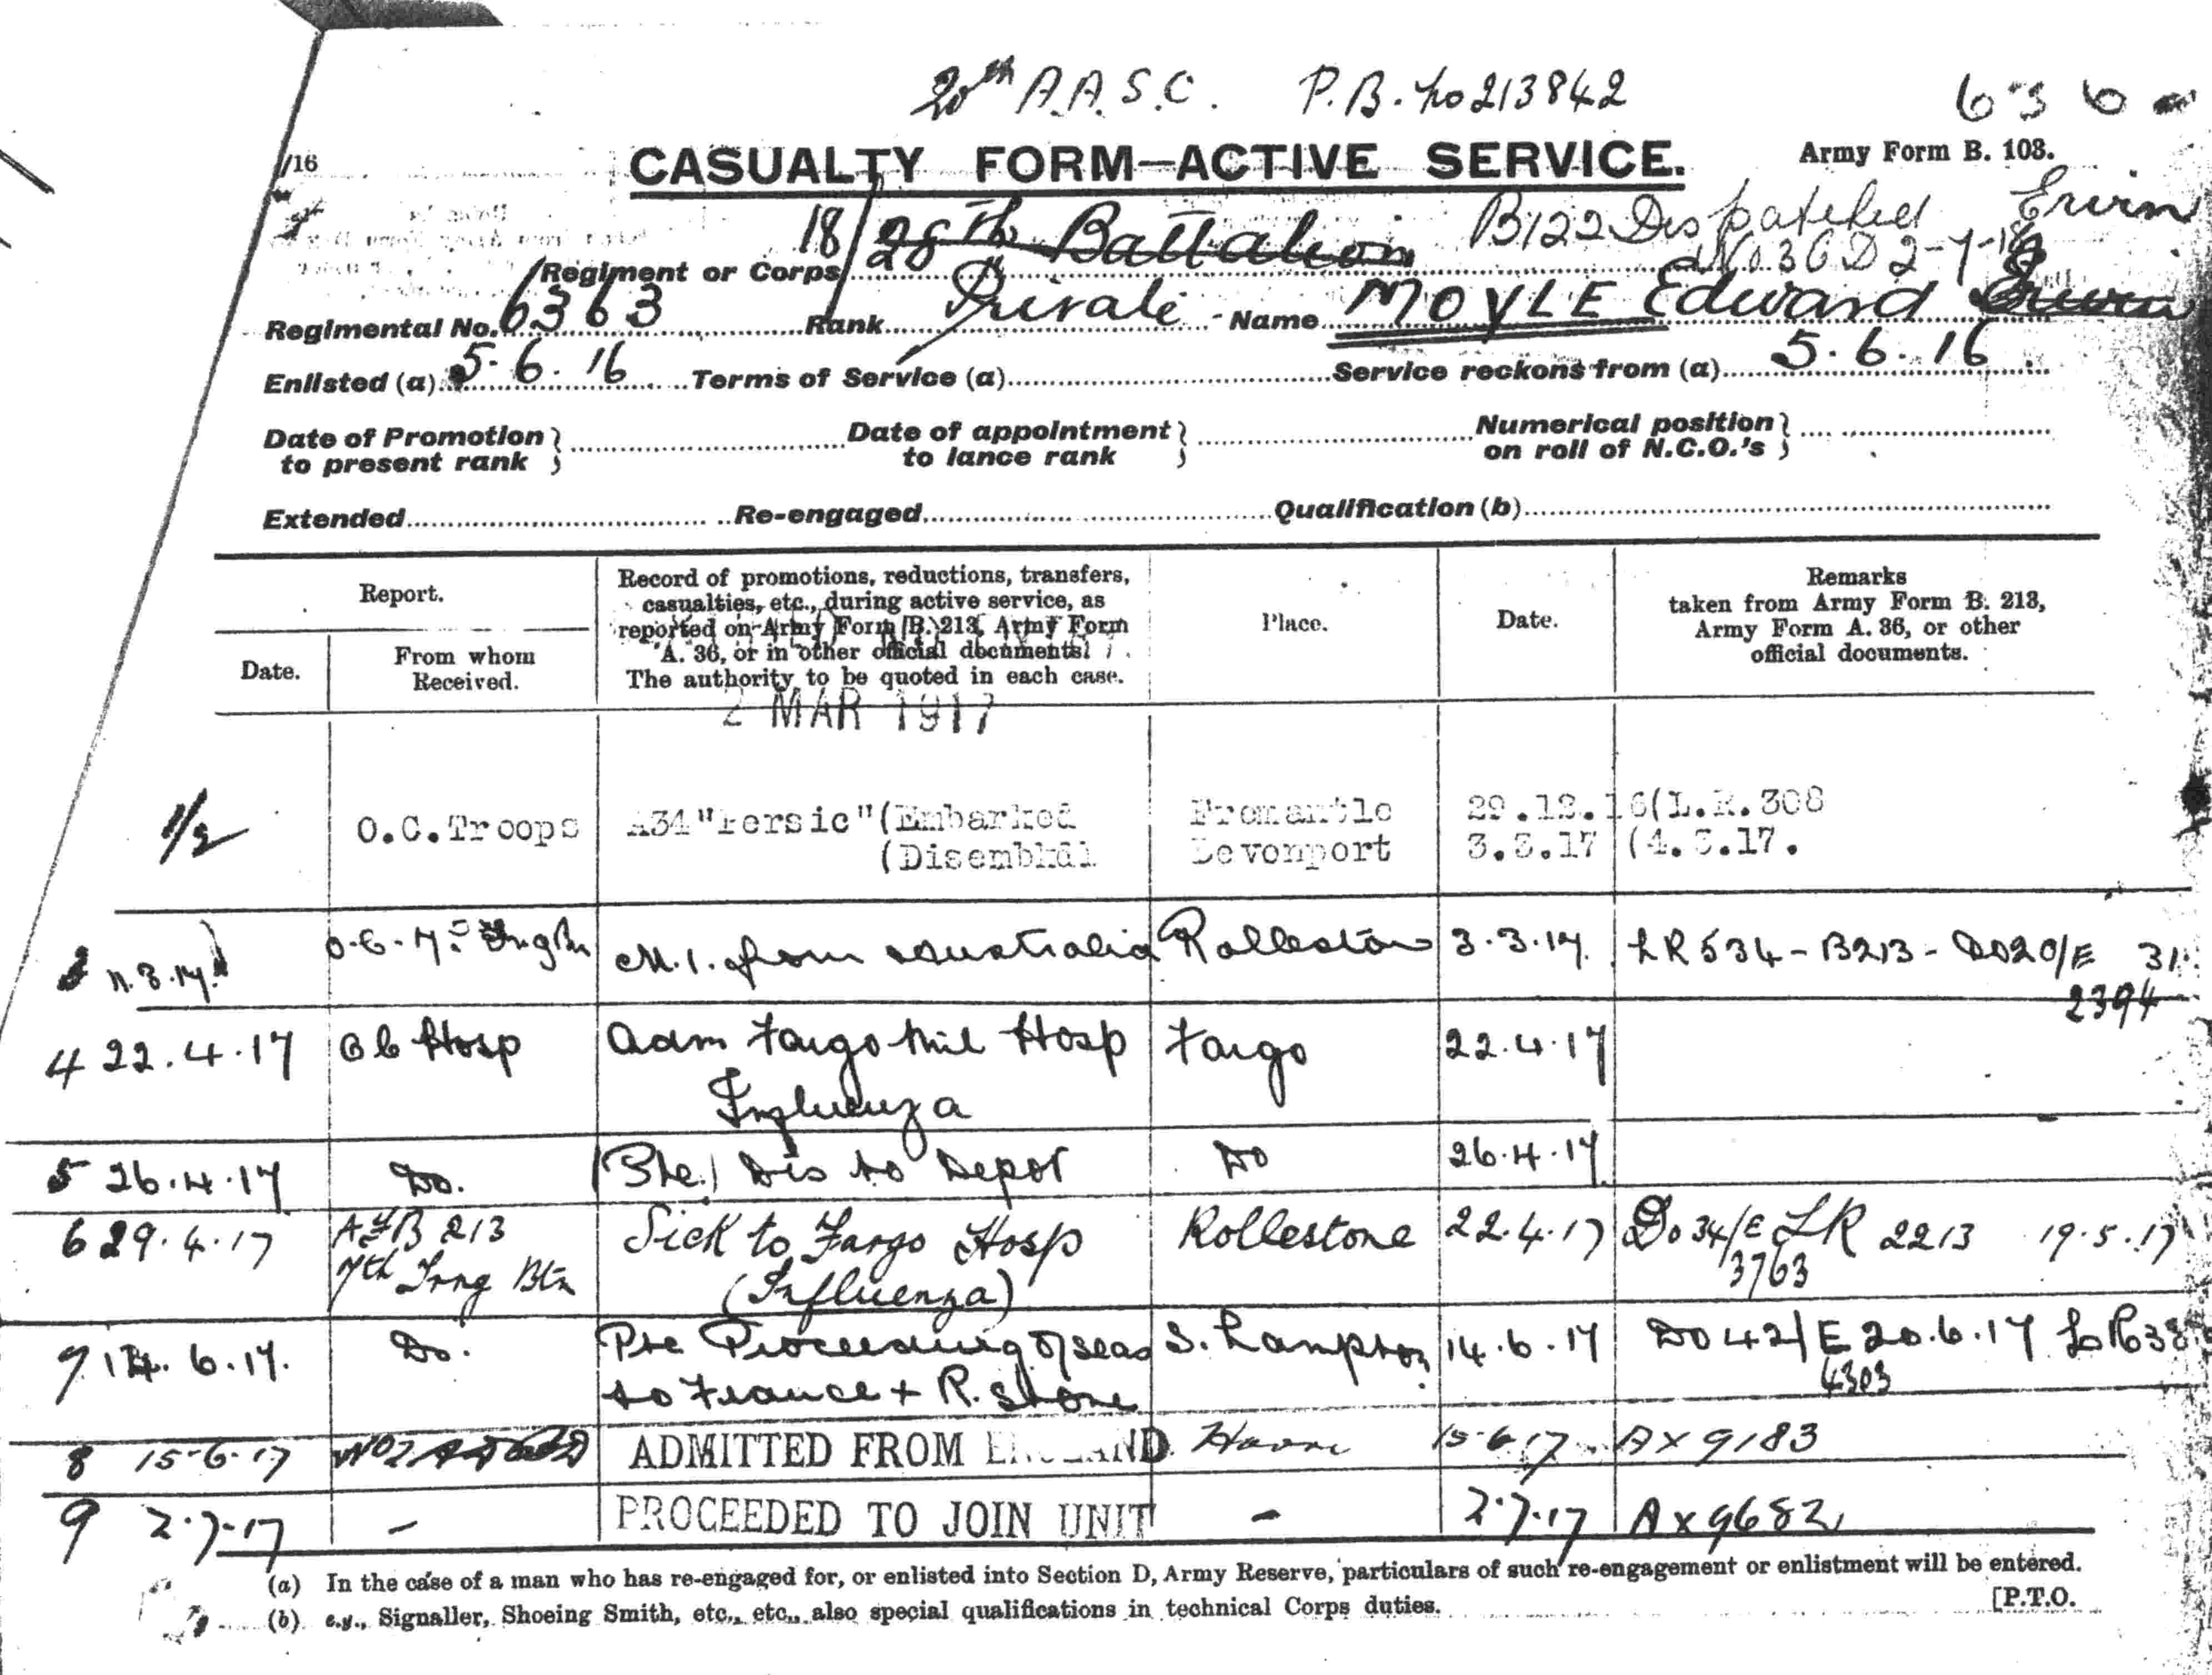 20th A.A.S.C. P.B. No 213842
636
/16
CASUALTY FORM—ACTIVE SERVICE.
Army Form B. 103.
18/28th Battalion B122 Dispatched Erwin
Regiment or Corps
Regimental No. 6363 Rank Private Name MOYLE Edward Erwin
Enlisted (a) 5.6.16 Terms of Service (a) Service reckons from (a) 5.6.16
Date of Promotion to present rank } Date of appointment to lance rank } Numerical position on roll of N.C.O.'s }
Extended Re-engaged Qualification (b)
Report.
Date.
From whom Received.
Record of promotions, reductions, transfers,
casualties, etc., during active service, as
reported on Army Form B. 213, Army Form
A. 36, or in other official documents.
The authority to be quoted in each case.
Place.
Date.
Remarks
taken from Army Form B. 213,
Army Form A. 36, or other
official documents.
2 MAR 1917
1/2 O.C.Troops A34"Persic"(Embarked Fremantle 29.12.16(L.R.308
(Disembkd Devonport 3.3.17 (4.3.17.
M.I. from Australia Rolleston 3.3.17. LR 534 - B213 - DO20/E 31
2394
4 22.4.17 Hosp Adm Fargo Mil Hosp Fargo 22.4.17
Influenza
5 26.4.17 Do. (Pte.) Dis to Depot Do 26.4.17
6 29.4.17 AFB 213 Sick to Fargo Hosp Rollestone 22.4.17 Do 34/E LR 2213 19.5.17
7th Trng Btn (Influenza) 3763
7 14.6.17. Do. Pte Proceeding O/seas S. Hampton 14.6.17 DO 42/E 20.6.17
to France + R. Stone 4303
8 15-6-17 ADMITTED FROM ENGLAND. Havre 15-6-17 AX 9183
9 2.7.17 - PROCEEDED TO JOIN UNIT - 2.7.17 AX 9682
(a) In the case of a man who has re-engaged for, or enlisted into Section D, Army Reserve, particulars of such re-engagement or enlistment will be entered.
(b) e.g., Signaller, Shoeing Smith, etc., etc., also special qualifications in technical Corps duties.
[P.T.O.